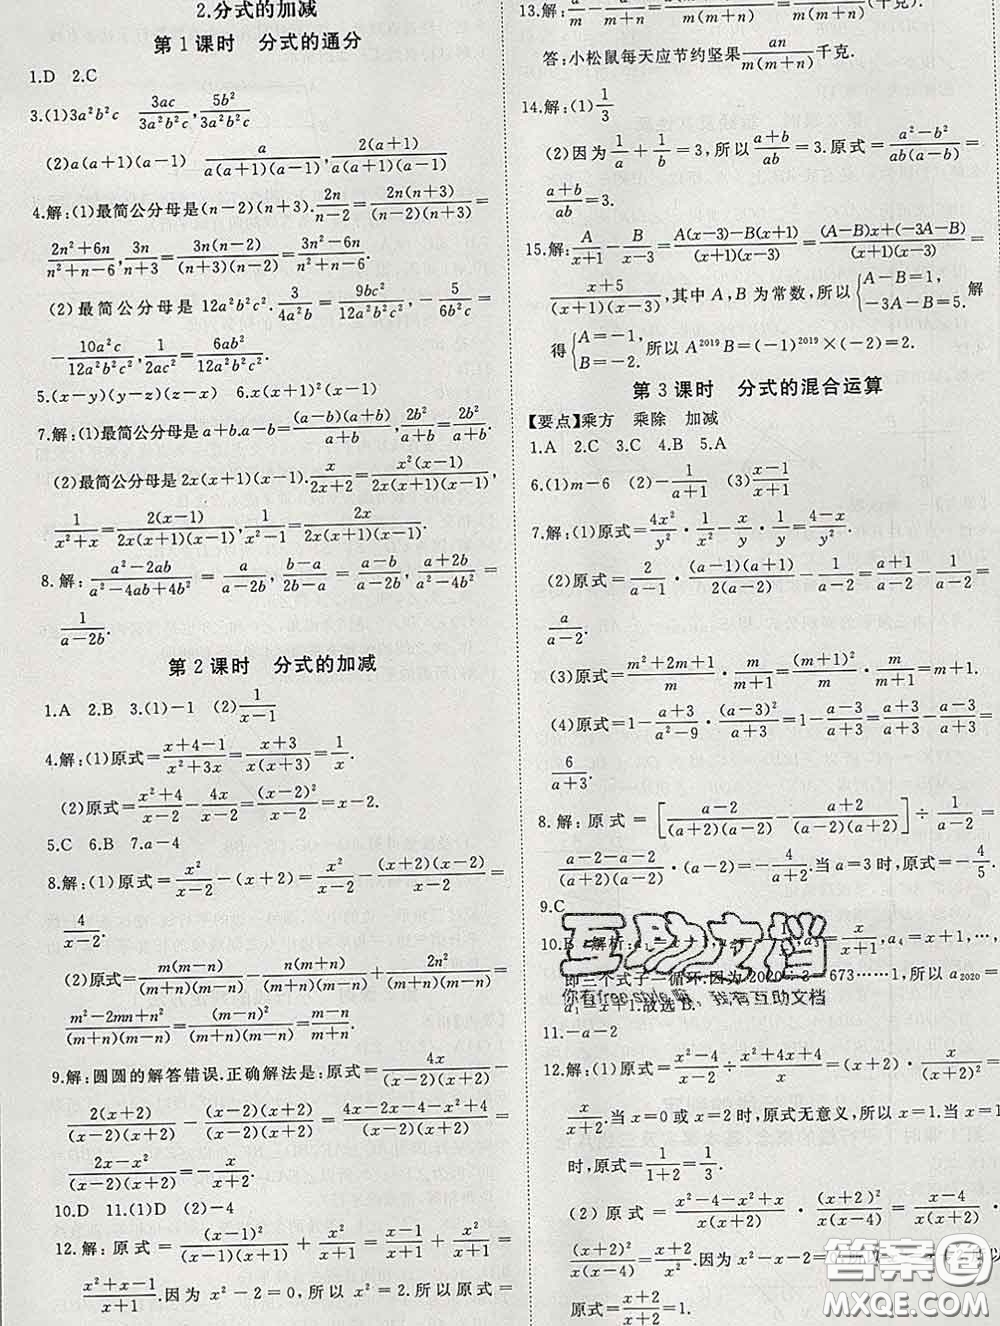 2.分式的加减
第1课时 分式的通分
1.D 2.C
3.(1)3a²b²c 3ac/(3a²b²c), 5b²/(3a²b²c)
(2)a(a+1)(a-1) a/(a(a+1)(a-1)), 2(a+1)/(a(a+1)(a-1))
4.解:(1)最简公分母是(n-2)(n+3). 2n/(n-2)=2n(n+3)/((n-2)(n+3))=
(2n²+6n)/(n²+n-6), 3n/(n+3)=3n(n-2)/((n+3)(n-2))=(3n²-6n)/(n²+n-6).
(2)最简公分母是12a²b²c². 3/(4a²b)=9bc²/(12a²b²c²), -5/(6b²c)=
-10a²c/(12a²b²c²), 1/(2ac²)=6ab²/(12a²b²c²).
5.(x-y)(y-z)(z-x) 6.x(x+1)²(x-1)
7.解:(1)最简公分母是a+b.a-b=(a-b)(a+b)/(a+b), 2b²/(a+b)=2b²/(a+b).
(2)最简公分母是2x(x+1)(x-1). x/(2x+2)=x²(x-1)/(2x(x+1)(x-1)),
1/(x²+x)=2(x-1)/(2x(x+1)(x-1)), 1/(x²-1)=2x/(2x(x+1)(x-1)).
8.解:(a²-2ab)/(a²-4ab+4b²)=a/(a-2b), (b-a)/(2b-a)=(a-b)/(a-2b), (a+2b)/(a²-4b²)=
1/(a-2b).
第2课时 分式的加减
1.A 2.B 3.(1)-1 (2)1/(x-1)
4.解:(1)原式=(x+4-1)/(x²+3x)=(x+3)/(x(x+3))=1/x.
(2)原式=(x²+4)/(x-2)-4x/(x-2)=(x-2)²/(x-2)=x-2.
5.C 6.B 7.a-4
8.解:(1)原式=x²/(x-2)-(x+2)=x²/(x-2)-(x+2)(x-2)/(x-2)=
4/(x-2).
(2)原式=m(m-n)/((m+n)(m-n))-n(m+n)/((m+n)(m-n))+2n²/((m+n)(m-n))=
(m²-2mn+n²)/((m+n)(m-n))=(m-n)²/((m+n)(m-n))=(m-n)/(m+n).
9.解:圆圆的解答错误.正确解法是:原式=4x/((x-2)(x+2))-
2(x+2)/((x-2)(x+2))-(x-2)(x+2)/((x-2)(x+2))=(4x-2x-4-x²+4)/((x-2)(x+2))=
(2x-x²)/((x-2)(x+2))=-x/(x+2).
10.D 11.(1)D (2)-4
12.解:原式=(x-1)²/((x-1)(x+1))+x²/(x+1)=(x-1)/(x+1)+x²/(x+1)=
(x²+x-1)/(x+1).因为x²-2=0,所以x²=2.所以原式=
13.解:a/m-a/(m+n)=(千克).
答:小松鼠每天应节约坚果an/(m(m+n))千克.
14.解:(1)1/3
(2)因为1/a+1/b=3,所以(a+b)/ab=3.原式=(a²-b²)/(ab(a-b))=
(a+b)/ab=3.
15.解:A/(x+1)-B/(x-3)=(A(x-3)-B(x+1))/((x+1)(x-3))=((A-B)x+(-3A-B))/((x+1)(x-3))=
(x+5)/((x+1)(x-3)),其中A,B为常数,所以{A-B=1, -3A-B=5. 解
得{A=-1, B=-2. 所以A²⁰¹⁹B=(-1)²⁰¹⁹×(-2)=2.
第3课时 分式的混合运算
【要点】乘方 乘除 加减
1.A 2.C 3.C 4.B 5.A
6.(1)m-6 (2)-1/(a+1) (3)(x-1)/(x+1)
7.解:(1)原式=4x²/y²·1/x²-x/y·1/y=(4-x)/y².
(2)原式=2/(a-1)·(a-1)(a+1)/(2(a-2))-1/(a-2)=(a+1)/(a-2)-1/(a-2)=
a/(a-2).
(3)原式=(m²+2m+1)/m·m/(m+1)=(m+1)²/m·m/(m+1)=m+1.
(4)原式=1-(a+3)/(a²-9)·(a-3)²/(a+3)=1-(a-3)/(a+3)=(a+3)/(a+3)-(a-3)/(a+3)=
6/(a+3).
8.解:原式=[(a-2)/((a+2)(a-2))-(a+2)/((a-2)(a+2))]÷1/(a-2)=
(a-2-a-2)/((a+2)(a-2))·(a-2)=-4/(a+2).当a=3时,原式=-4/5.
9.C
10.B 解析:a₁=x+1, a₃=x/(x+1),a₄=x+1,…,
即三个式子一循环.因为2020÷3=673……1,所以a₂₀₂₀=
a₁=x+1.故选B.
11.-a-2
12.解:(1)原式=(x²-4)/(x²-2x)÷(x²+4x+4)/x=(x+2)(x-2)/(x(x-2))·x/(x+2)²=
1/(x+2).当x=0或x=2时,原式无意义,所以x=1.当x=1
时,原式=1/(1+2)=1/3.
(2)原式=(x²-4-x²+x)/(x(x+2))÷(x-4)/(x+2)²=(x-4)/(x(x+2))·
(x+2)²/(x-4)=(x+2)/x.因为x²-x-2=0,所以
原式=(x+2)/x²=1.
互助文档
你有free style嘛，我有互助文档
答案圈
MXQE.COM